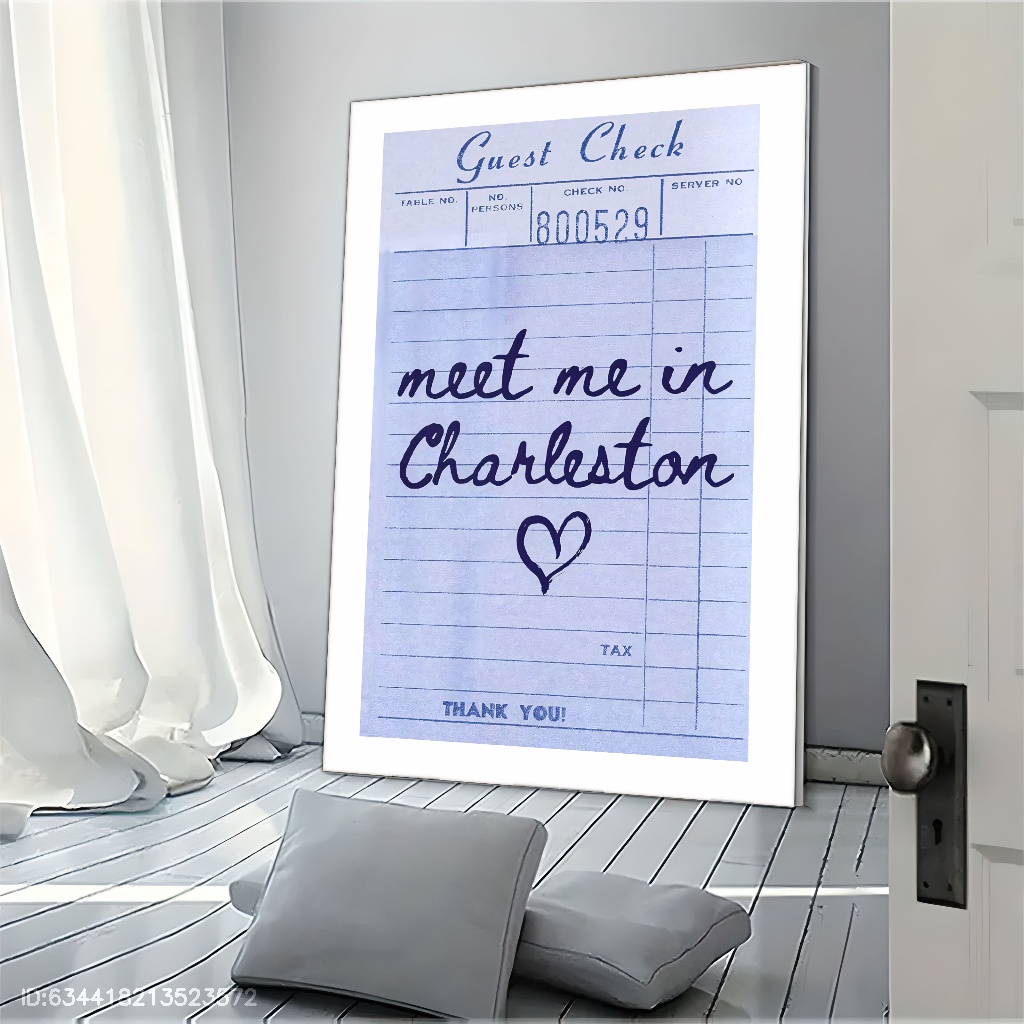 Guest Check
TABLE NO.
NO. PERSONS
CHECK NO
SERVER NO
800529
meet me in
Charleston
TAX
THANK YOU!
ID:634418213523572